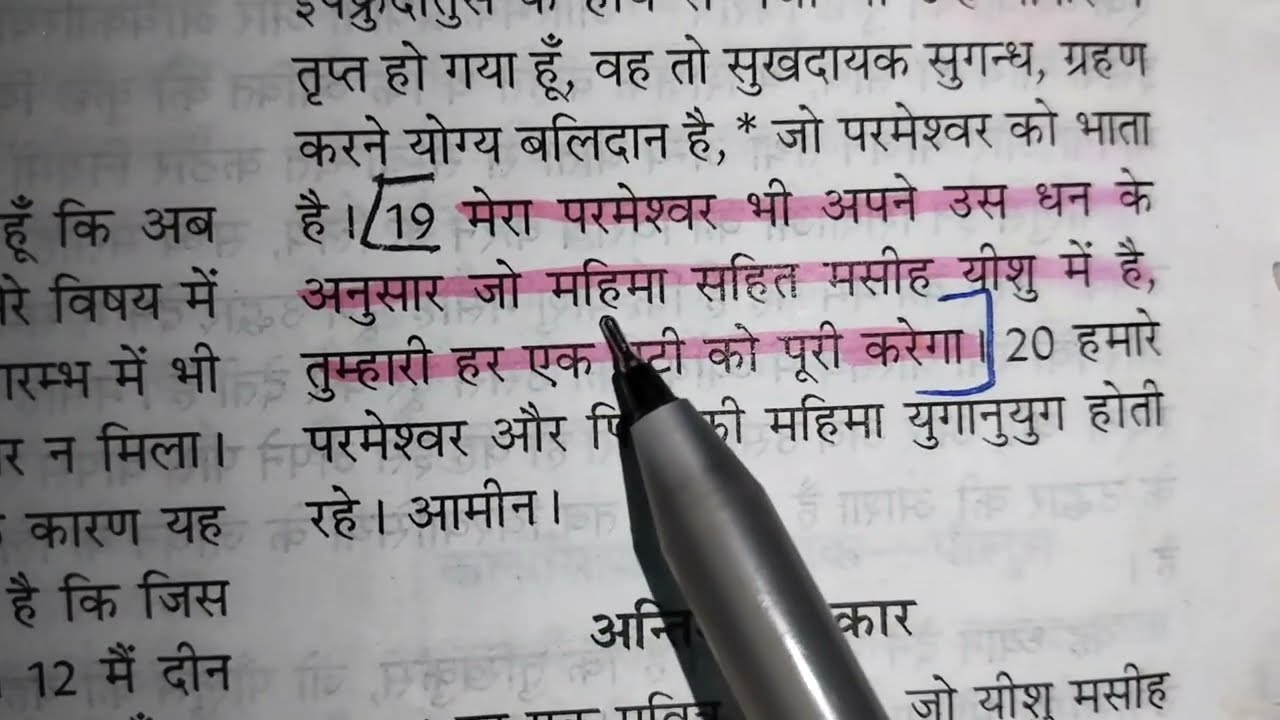 हूँ कि अब
विषय में
में भी
न मिला।
कारण यह
है कि जिस
12 मैं दीन
तृप्त हो गया हूँ, वह तो सुखदायक सुगन्ध, ग्रहण
करने योग्य बलिदान है, * जो परमेश्वर को भाता
है। 19 मेरा परमेश्वर भी अपने उस धन के
अनुसार जो महिमा सहित मसीह यीशु में है,
तुम्हारी हर एक को पूरी करेगा। 20 हमारे
परमेश्वर और की महिमा युगानुयुग होती
रहे। आमीन।
जो यीशु मसीह